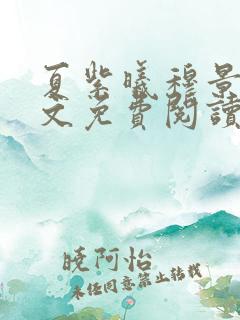 夏紫曦穆景
文免費閱讀
曉阿怡
未任同意禁止轉載